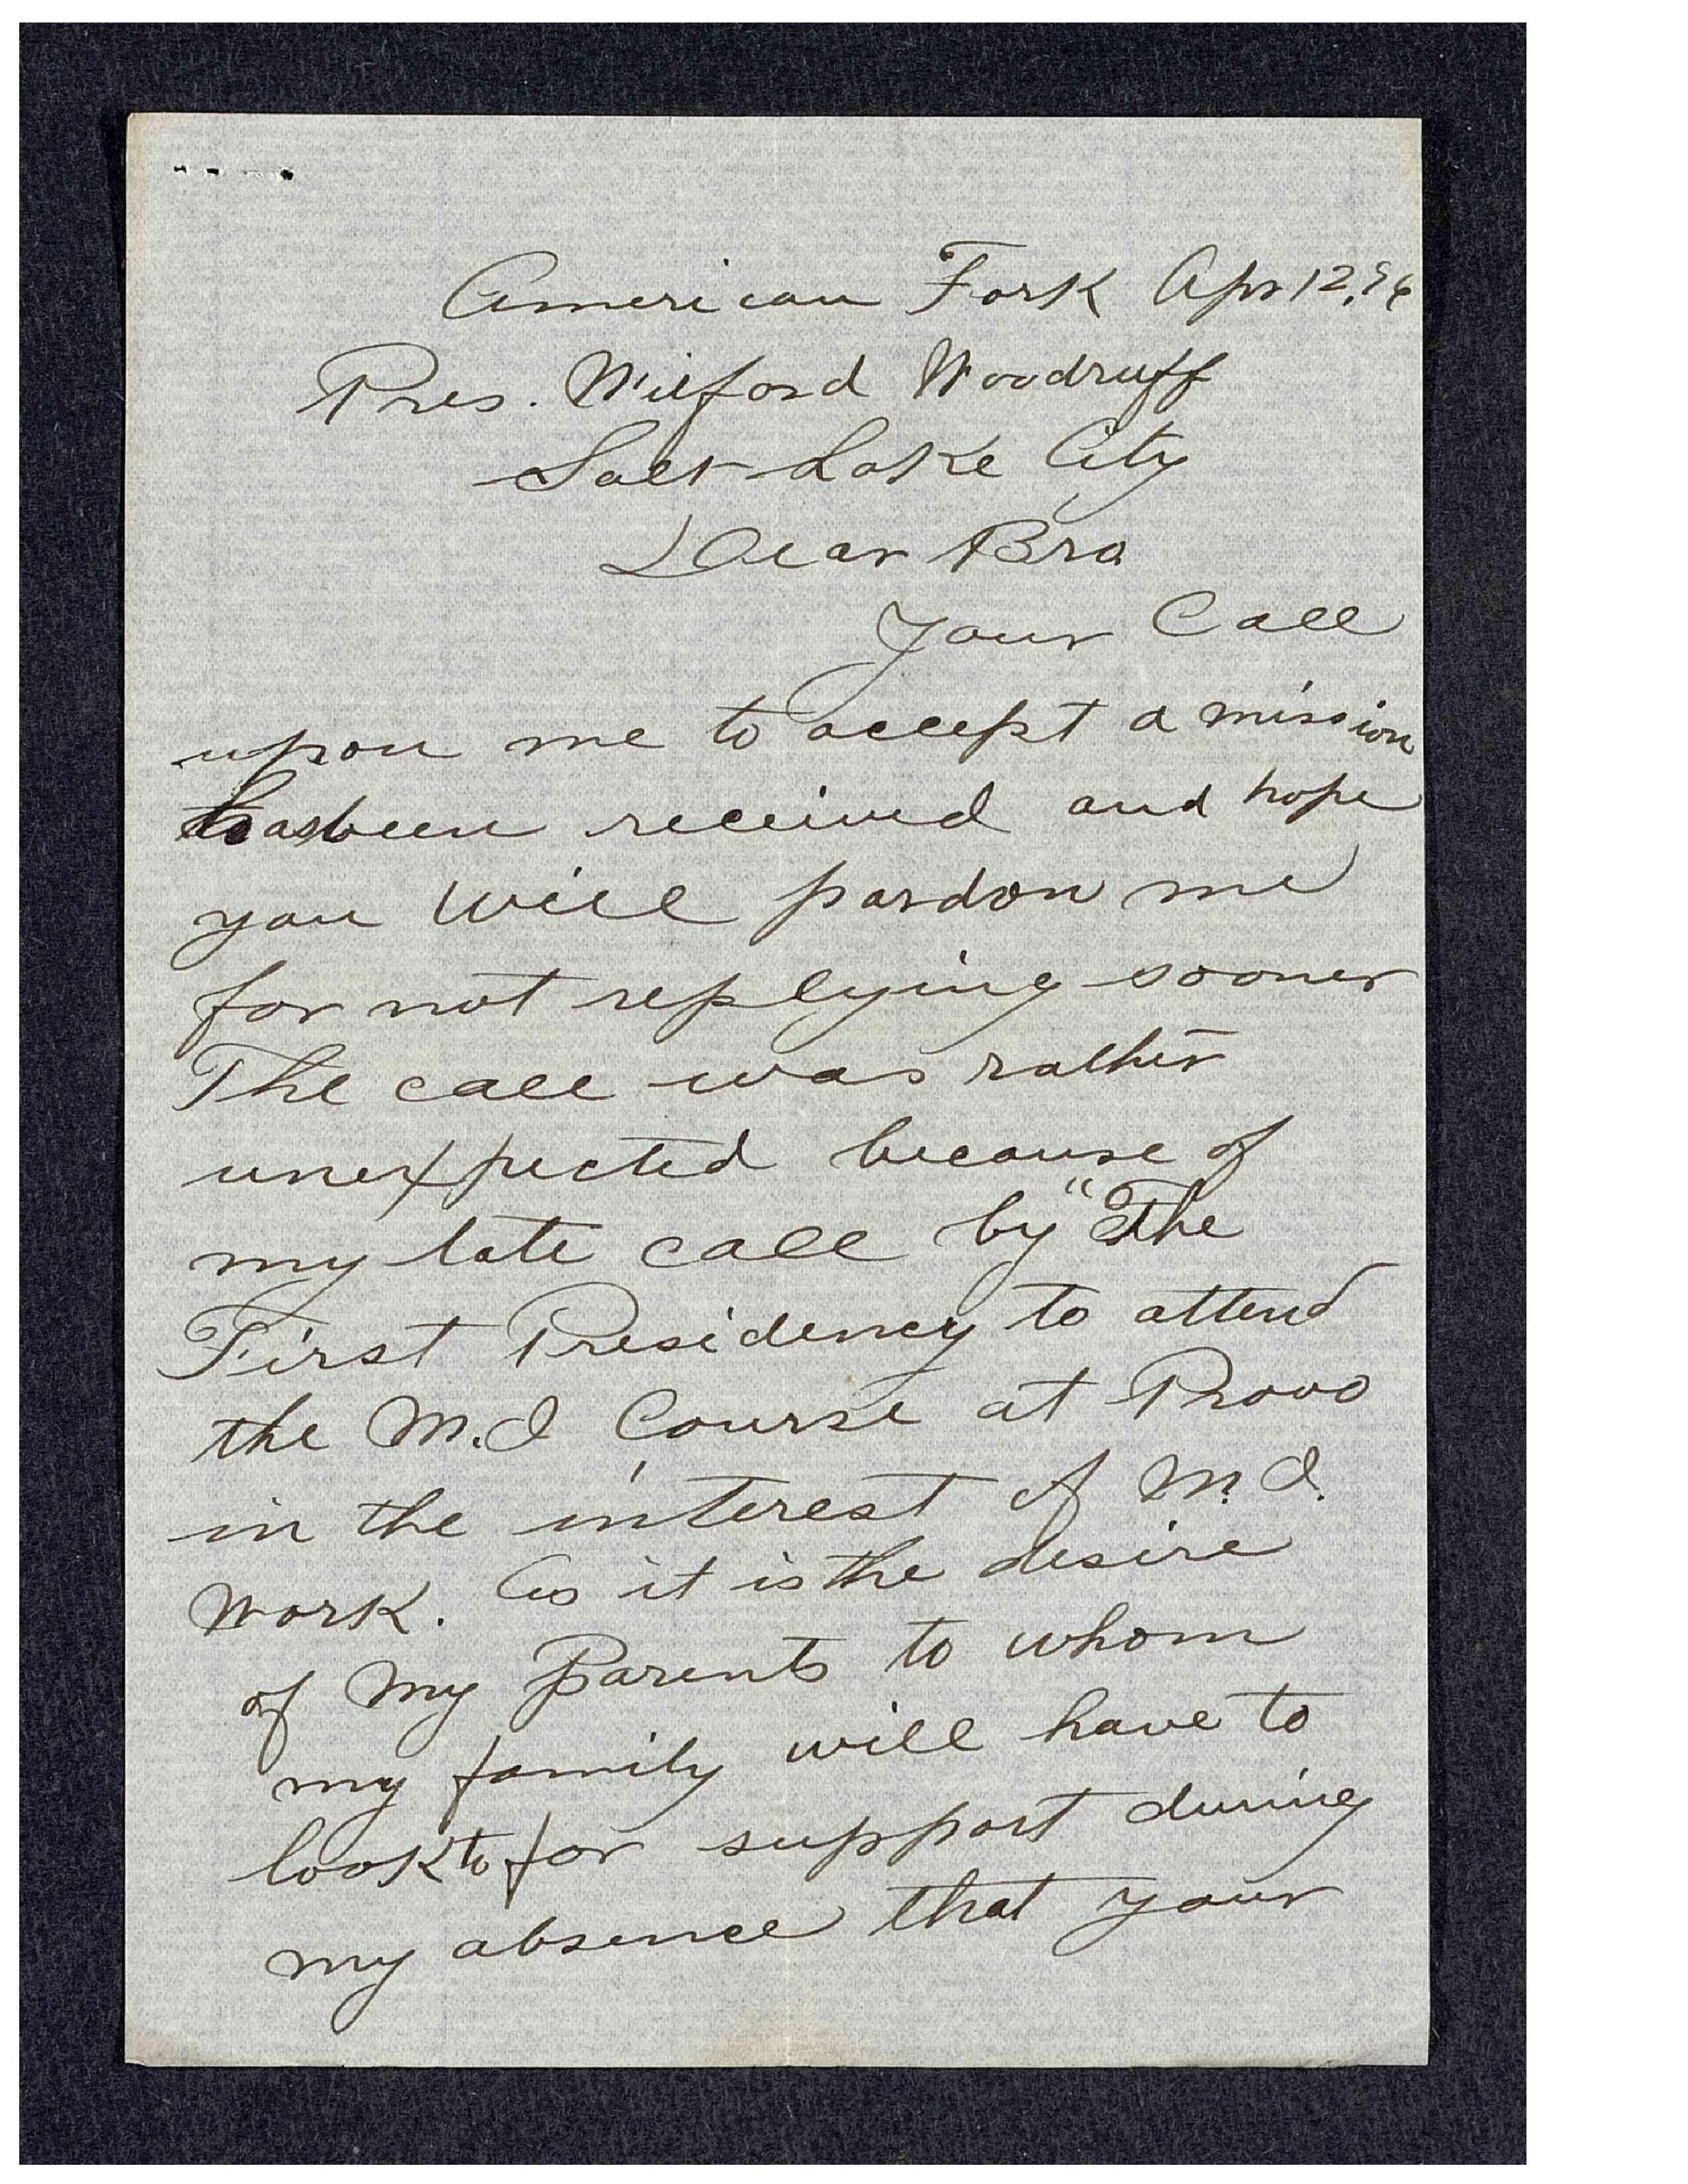 American Fork Apr 12, 96
Pres. Wilford Woodruff
Salt Lake City
Dear Bro
Your Call
upon me to accept a mission
has been received and hope
you will pardon me
for not replying sooner
The call was rather
unexpected because of
my late call by "The
First Presidency to attend
the M.I Course at Provo
in the interest of M.I.
Work. As it is the desire
of my Parents to whom
my family will have to
look to for support during
my absence that your